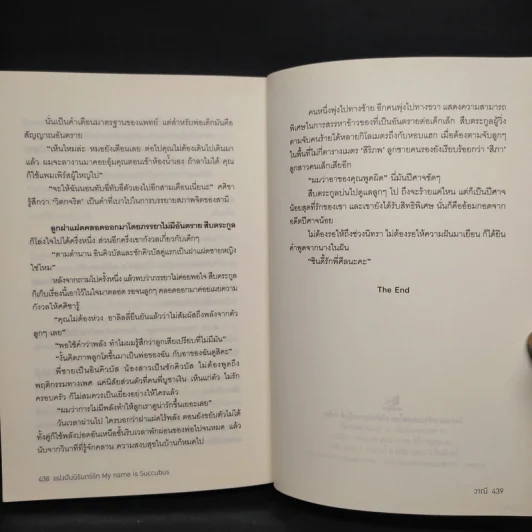 นั่นเป็นคำเตือนมาตรฐานของแพทย์ แต่สำหรับพ่อเด็กมันคือ
สัญญาณอันตราย
"เห็นไหมล่ะ หมอยังเตือนเลย ต่อไปคุณไม่ต้องเดินไปเดินมา
แล้ว ผมจะลางานมาคอยอุ้มคุณตอนเข้าห้องน้ำเอง ถ้าลาไม่ได้ คุณ
ก็ใช้แพมเพิร์สผู้ใหญ่ไป"
"จะให้ฉันนอนทับอึทับฉี่ตัวเองไปอีกสามเดือนเนี่ยนะ" คติชา
รู้สึกว่า 'วิตกจริต' เป็นคำที่เบาไปในการบรรยายสภาพจิตของสามี
ลูกฝาแฝดคลอดออกมาโดยภรรยาไม่มีอันตราย สืบตระกูล
ก็โล่งใจไปได้ครึ่งหนึ่ง ส่วนอีกครึ่งเขากังวลเกี่ยวกับเด็กๆ
"ตามตำนาน อินคิวบัสและซัคคิวบัสคู่แรกเป็นฝาแฝดชายหญิง
ใช่ไหม"
หลังจากถามไปครั้งหนึ่ง แล้วพบว่าภรรยาไม่ค่อยพอใจ สืบตระกูล
ก็เก็บเรื่องนี้เอาไว้ในใจมาตลอด รอจนลูกๆ คลอดออกมาค่อยเผยความ
กังวลให้คติชารู้
"คุณไม่ต้องห่วง อาลิลลี่ยืนยันแล้วว่าไม่สัมผัสถึงพลังจากตัว
ลูกๆ เลย"
"พอใช้คำว่าพลัง ทำไมผมรู้สึกว่าลูกเสียเปรียบที่ไม่มีมัน"
"งั้นคิดภาพลูกโตขึ้นมาเป็นพ่อของฉัน กับอาของฉันดูสิคะ"
พี่ชายเป็นอินคิวบัส น้องสาวเป็นซัคคิวบัส ไม่ต้องพูดถึง
พฤติกรรมทางเพศ แค่นิสัยส่วนตัวที่คนพี่บูชาเงิน เห็นแก่ตัว ไม่รัก
ครอบครัว ก็ไม่สมควรเป็นเยี่ยงอย่างให้ใครแล้ว
"ผมว่าการไม่มีพลังทำให้ลูกเราดูน่ารักขึ้นเยอะเลย"
วันเวลาผ่านไป ใครบอกว่าฝาแฝดไร้พลัง ตอนยังขยับตัวไม่ได้
ทั้งคู่ก็ใช้พลังปอดอันเหนือชั้นริบเวลาพักผ่อนของพ่อไปจนหมด แล้ว
นับจากวินาทีที่รู้จักคลาน ความสงบสุขในบ้านก็หมดไป
438 แฝงฝันนิรันดร์รัก My name is Succubus
คนหนึ่งพุ่งไปทางซ้าย อีกคนพุ่งไปทางขวา แสดงความสามารถ
พิเศษในการสรรหาข้าวของที่เป็นอันตรายต่อเด็กเล็ก สืบตระกูลผู้วิ่ง
ตามจับคนร้ายได้หลายกิโลเมตรถึงกับหอบแฮก เมื่อต้องตามจับลูกๆ
ในพื้นที่ไม่กี่ตารางเมตร 'สิริภพ' ลูกชายคนรองยังเรียบร้อยกว่า 'สิภา'
ลูกสาวคนเล็กเสียอีก
"ผมว่าอาของคุณพูดผิด" นี่มันปีศาจชัดๆ
สืบตระกูลบ่นไปดูแลลูกๆ ไป ถึงจะร้ายแค่ไหน แต่ก็เป็นปีศาจ
น้อยสุดที่รักของเขา และเขายังได้รับสิทธิพิเศษ นั่นก็คืออ้อมกอดจาก
อดีตปีศาจน้อย
ไม่ต้องรอให้ถึงช่วงนิทรา ไม่ต้องรอให้ความฝันมาเยือน ก็ได้ยิน
คำพูดจากนางในฝัน
"ซินดี้รักพี่ศีลนะคะ"
The End
วาณี 439